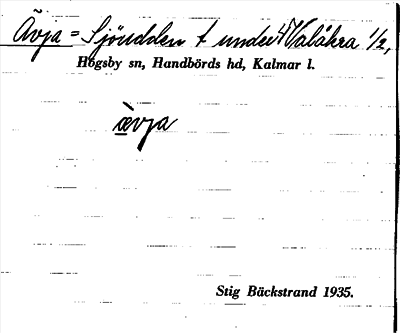 Ävja = Sjöudden t under 4 Valåkra 1/2,
Högsby sn, Handbörds hd, Kalmar l.
ävja
Stig Bäckstrand 1935.